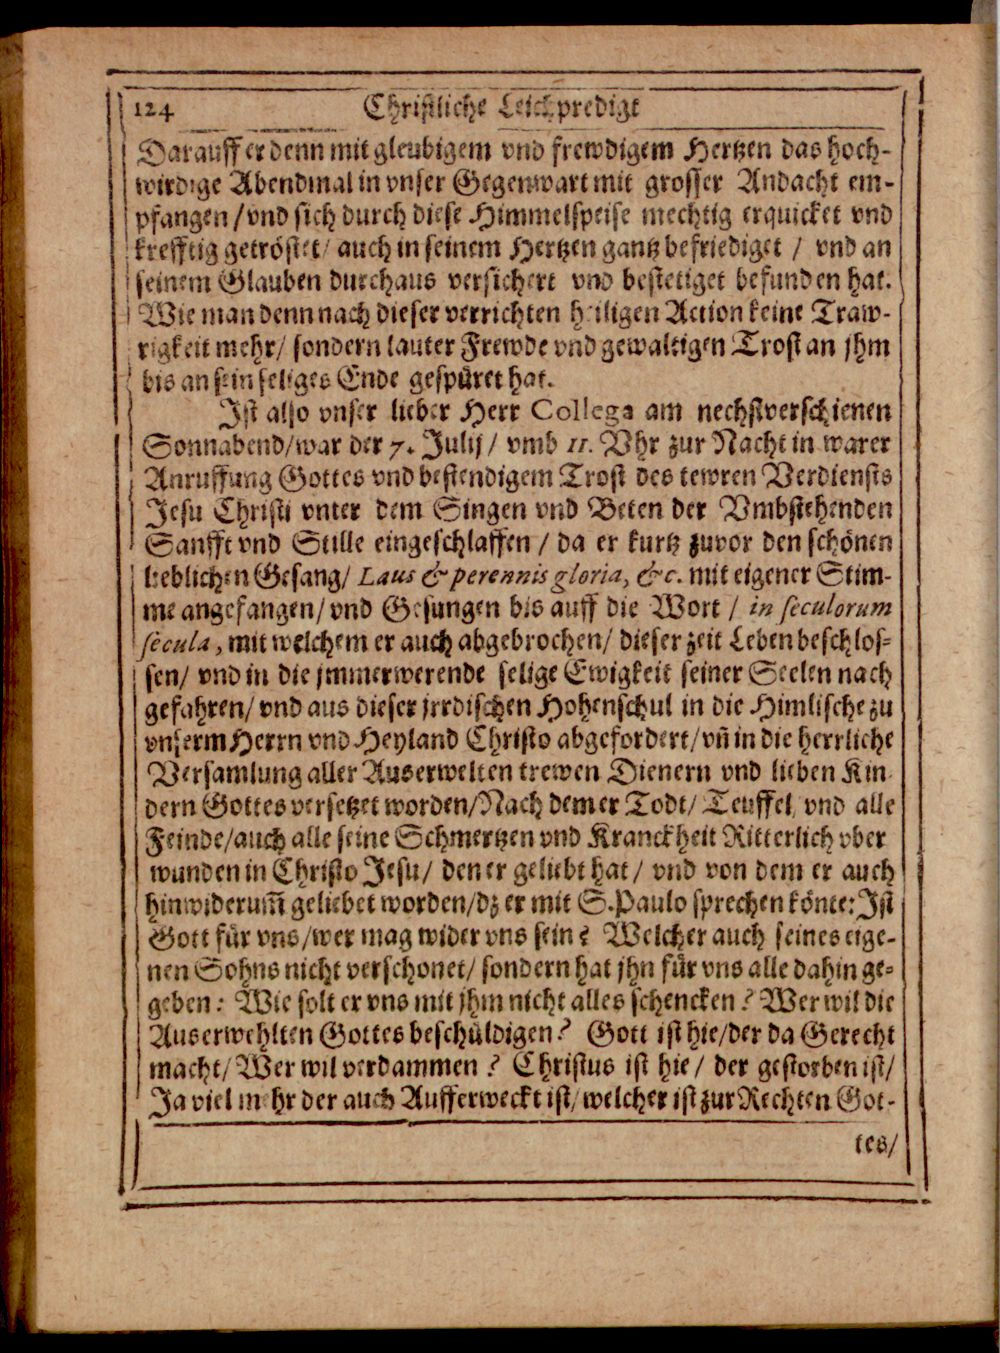 124 Christliche Leichpredigt
Darauff er denn mit gleubigem vnd frewdigem Hertzen das hoch-
wirdige Abendmal in vnser Gegenwart mit grosser Andacht em-
pfangen / vnd sich durch diese Himmelspeise mechtig erquicket vnd
krefftig getröstet / auch in seinem Hertzen gantz befriediget / vnd an
seinem Glauben durchaus versichert vnd bestetiget befunden hat.
Wie man denn nach dieser verrichten heiligen Action keine Traw-
rigkeit mehr / sondern lauter Frewde vnd gewaltigen Trost an jhm
bis an sein seliges Ende gespüret hat.
Ist also vnser lieber Herr Collega am nechstverschienen
Sonnabend / war der 7. Julij / vmb 11. Vhr zur Nacht in warer
Anruffung Gottes vnd bestendigem Trost des tewren Verdiensts
Jesu Christi vnter dem Singen vnd Beten der Vmbstehenden
Sanfft vnd Stille eingeschlaffen / da er kurtz zuvor den schönen
lieblichen Gesang / Laus & perennis gloria, &c. mit eigener Stim-
me angefangen / vnd Gesungen bis auff die Wort / in seculorum
secula, mit welchem er auch abgebrochen / dieser zeit Leben beschlos-
sen / vnd in die jmmerwerende selige Ewigkeit seiner Seelen nach
gefahren / vnd aus dieser jrrdischen Hohenschul in die Himlische zu
vnserm Herrn vnd Heyland Christo abgefordert / vñ in die herrliche
Versamlung aller Auserwelten trewen Dienern vnd lieben Kin-
dern Gottes versetzet worden / Nach dem er Todt / Teuffel / vnd alle
Feinde / auch alle seine Schmertzen vnd Kranckheit Ritterlich vber
wunden in Christo Jesu / den er geliebt hat / vnd von dem er auch
hinwiderum̃ geliebet worden / dz er mit S. Paulo sprechen könte: Ist
Gott für vns / wer mag wider vns sein? Welcher auch seines eige-
nen Sohns nicht verschonet / sondern hat jhn für vns alle dahin ge-
geben: Wie solt er vns mit jhm nicht alles schencken? Wer wil die
Auserwehlten Gottes beschüldigen? Gott ist hie / der da Gerecht
macht / Wer wil verdammen? Christus ist hie / der gestorben ist /
Ja viel mehr der auch Aufferweckt ist / welcher ist zur Rechten Got-
tes /